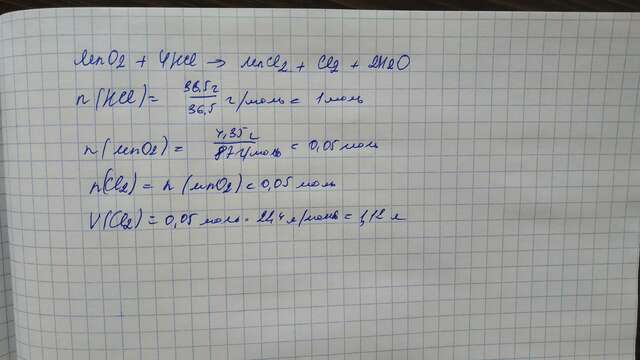 MnO2 + 4HCl → MnCl2 + Cl2 + 2H2O
n(HCl) = 36,5г / 36,5 г/моль = 1 моль
n(MnO2) = 4,35г / 87 г/моль = 0,05 моль
n(Cl2) = n(MnO2) = 0,05 моль
V(Cl2) = 0,05 моль · 22,4 л/моль = 1,12 л